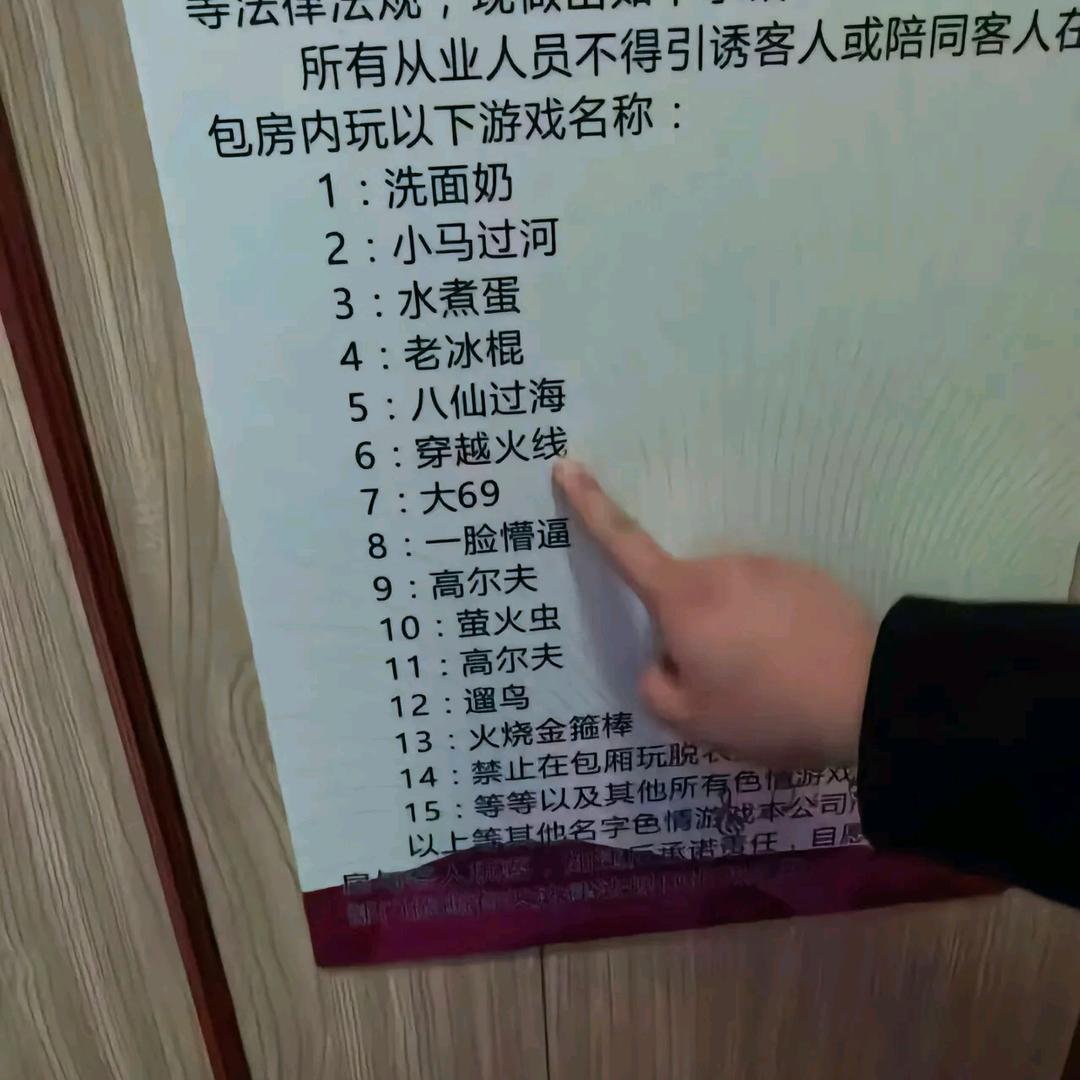 等法律法规，现做出如下
所有从业人员不得引诱客人或陪同客人在
包房内玩以下游戏名称：
1：洗面奶
2：小马过河
3：水煮蛋
4：老冰棍
5：八仙过海
6：穿越火线
7：大69
8：一脸懵逼
9：高尔夫
10：萤火虫
11：高尔夫
12：遛鸟
13：火烧金箍棒
14：禁止在包厢玩脱衣
15：等等以及其他所有色情游戏
以上等其他名字色情游戏本公司
承诺责任，自愿